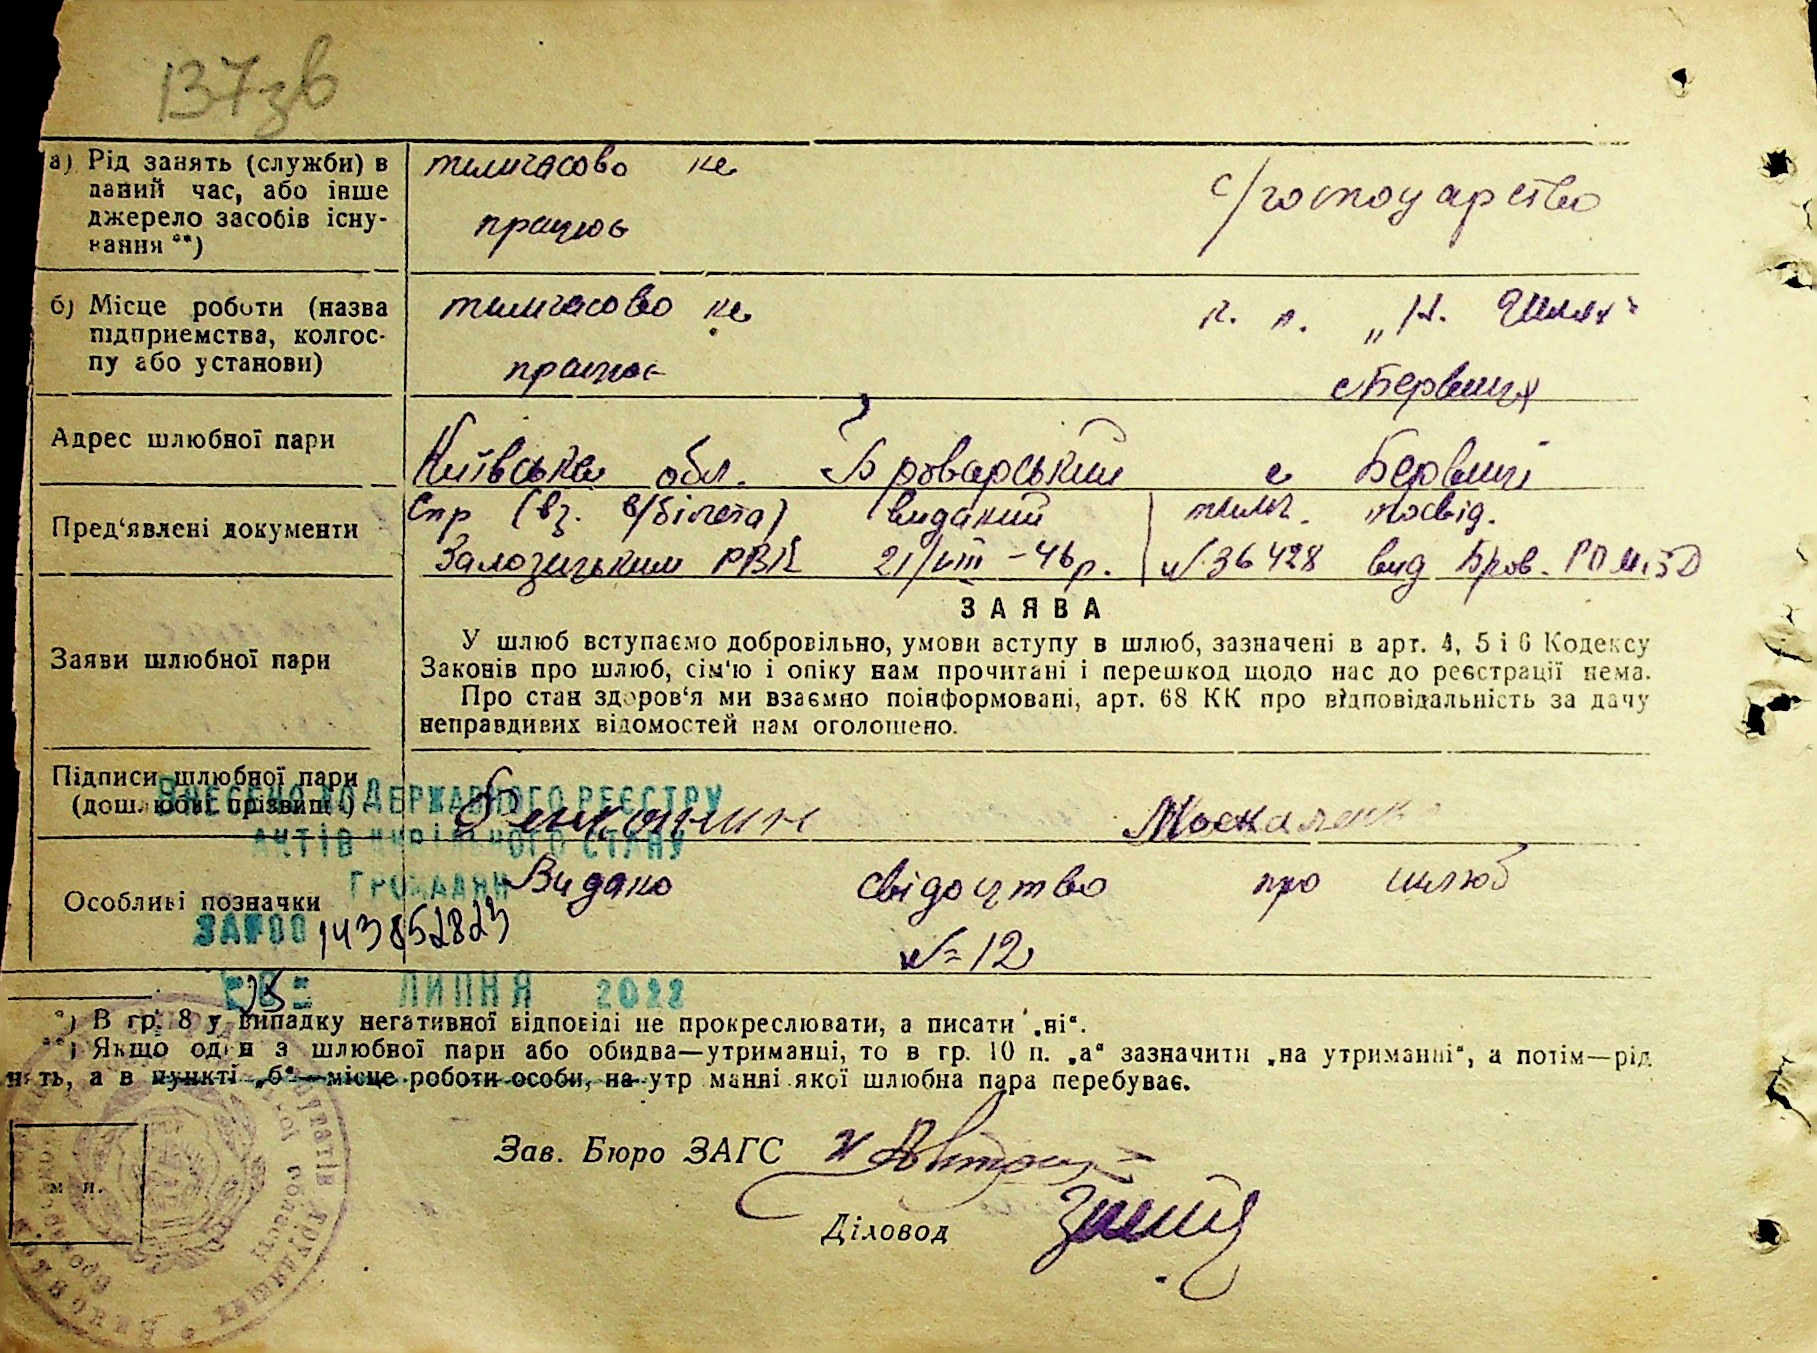 137зв
а) Рід занять (служби) в даний час, або інше джерело засобів існування **)
тимчасово не
працює
с/господарство
б) Місце роботи (назва підприємства, колгоспу або установи)
тимчасово не
працює
к. п. „Н.
с Бервиця
Адрес шлюбної пари
Київська обл. Броварський с Бервиці
Пред'явлені документи
Спр (вз. в/білета) виданий
Залозицьким РВК 21/ -46р.
тимч. посвід.
№ 36428 вид Бров. РО
ЗАЯВА
Заяви шлюбної пари
У шлюб вступаємо добровільно, умови вступу в шлюб, зазначені в арт. 4, 5 і 6 Кодексу
Законів про шлюб, сім'ю і опіку нам прочитані і перешкод щодо нас до реєстрації нема.
Про стан здоров'я ми взаємно поінформовані, арт. 68 КК про відповідальність за дачу
неправдивих відомостей нам оголошено.
Підписи шлюбної пари
(дошлюбні прізвища)
Москаленк
ВНЕСЕНО ДО ДЕРЖАВНОГО РЕЄСТРУ
АКТІВ ЦИВІЛЬНОГО СТАНУ
ГРОМАДЯН
Особливі позначки
Видано свідоцтво про шлюб
№ 12
ЗА №00143852823
ЛИПНЯ 2022
*) В гр. 8 у випадку негативної відповіді не прокреслювати, а писати „ні“.
**) Якщо один з шлюбної пари або обидва—утриманці, то в гр. 10 п. „а“ зазначити „на утриманні“, а потім—рід
нять, а в пункті „б“—місце роботи особи, на утр манні якої шлюбна пара перебуває.
Зав. Бюро ЗАГС
Діловод
м. п.